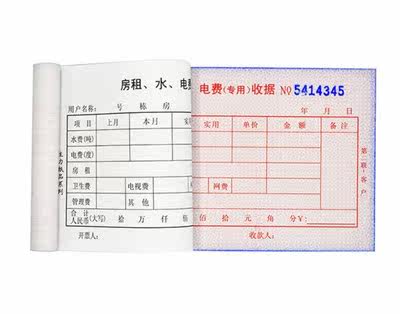 房租、水、电费
电费(专用)收据 NO 5414345
用户名称: 号 栋 房
年 月 日
项目 上月 本月 实用 单价 金额 备注
水费(吨)
电费(度)
房租
卫生费 电视费 网费
管理费 其他
合计
人民币(大写) 拾 万 仟 佰 拾 元 角 分 ¥:
开票人: 收款人:
第二联·客户